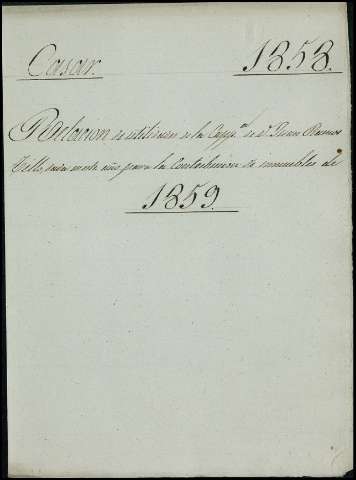 Casar. 1858.
Relacion de utilidades de la Capp.ª de D. Juan Ramos
Tello, en este año para la Contribucion de inmuebles de
1859.